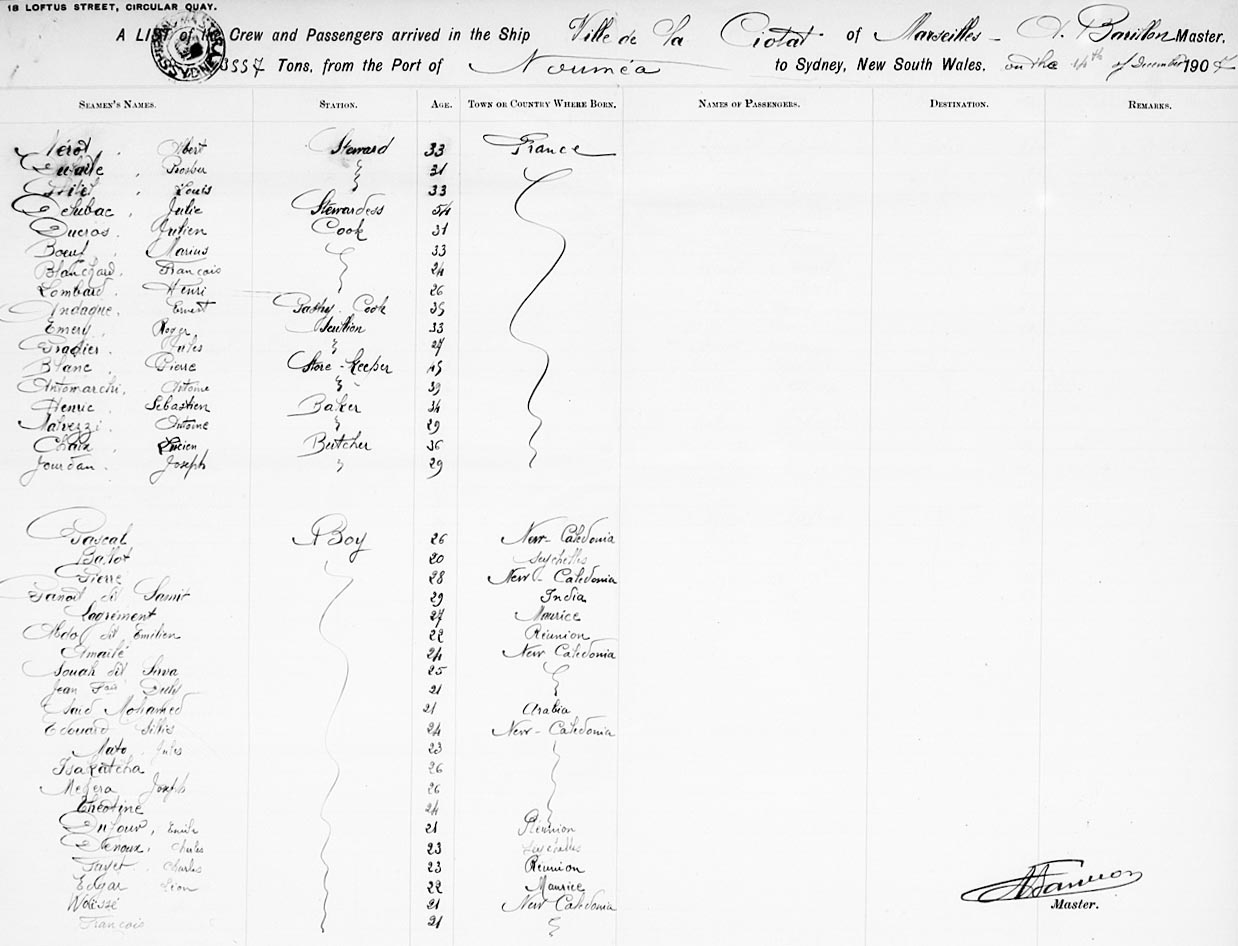 18 LOFTUS STREET, CIRCULAR QUAY.
A LIST of the Crew and Passengers arrived in the Ship Ville de La Ciotat of Marseilles - A. Barillon Master,
3557 Tons, from the Port of Nouméa to Sydney, New South Wales, on the 14th of December 1907
SEAMEN'S NAMES. STATION. AGE. TOWN OR COUNTRY WHERE BORN. NAMES OF PASSENGERS. DESTINATION. REMARKS.
Nérot, Albert Steward 33 France
Prosper 31
Louis 33
Delubac, Julie Stewardess 54
Ducros, Julien Cook 31
Boeuf, Marius 33
Blanchard, François 24
Lombard, Henri 26
Andaque, Ernest Pastry Cook 35
Emery, Roger Scullion 33
Pradier, Jules 27
Blanc, Pierre Store-Keeper 45
Antomarchi, Antoine 39
Henric Sebastien Baker 34
Malvezzi, Antoine 29
Chaix, Lucien Butcher 36
Jourdan, Joseph 29
Pascal Boy 26 New-Caledonia
Ballot 20 Seychelles
Pierre 28 New-Caledonia
dit Samir 29 India
Lagrement 27 Maurice
Abdol dit Emilien 22 Réunion
24 New Caledonia
Souah dit 25
Jean 21
Said Mohamed 21 Arabia
Edouard 24 New-Caledonia
Mato, Jules 23
Isakatcha 26
Joseph 26
24
Dufour, Emile 21 Réunion
Charles 23 Seychelles
Favet, Charles 23 Réunion
Edgar Léon 22 Maurice
21 New Caledonia
François 21
Master.